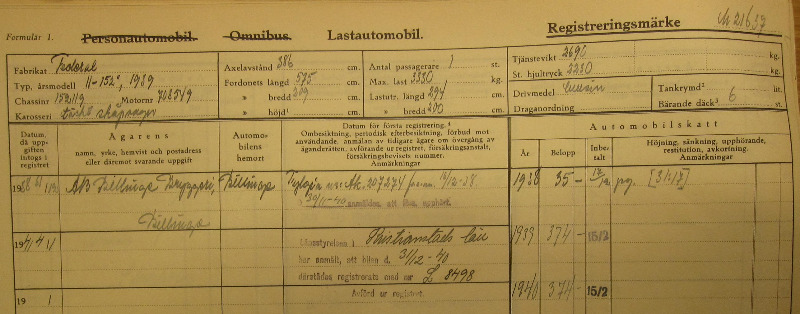 Formulär 1. Personautomobil. Omnibus. Lastautomobil. Registreringsmärke M 21637
Fabrikat Federal
Typ, årsmodell 11-152", 1939
Chassinr 152119 Motornr
Karosseri
Axelavstånd 386 cm.
Fordonets längd 575 cm.
» bredd 219 cm.
» höjd¹ cm.
Antal passagerare 1 st.
Max. last 3330 kg.
Lastutr. längd 294 cm.
» bredd 200 cm.
Tjänstevikt 2690 kg.
St. hjultryck 2230 kg.
Drivmedel bensin
Draganordning
Tankrymd² lit.
Bärande däck³ 6 st.
Datum, då uppgiften intogs i registret
Ägarens
namn, yrke, hemvist och postadress
eller däremot svarande uppgift
Automobilens hemort
Datum för första registrering.⁴
Ombesiktning, periodisk efterbesiktning, förbud mot
användande, anmälan av tidigare ägare om övergång av
äganderätten, avförande ur registret, försäkringsanstalt,
försäkringsbevisets nummer.
Anmärkningar
Automobilskatt
År Belopp Inbetalt
Höjning, sänkning, upphörande,
restitution, avkortning.
Anmärkningar
AB Billinge Bryggeri, Billinge
Billinge
1938 35-
1941
Länsstyrelsen i Kristianstads län
har anmält, att bilen d. 31/12-40
därstädes registrerats med nr L 8498
1939 374- 15/2
1940 374- 15/2
19
Avförd ur registret.